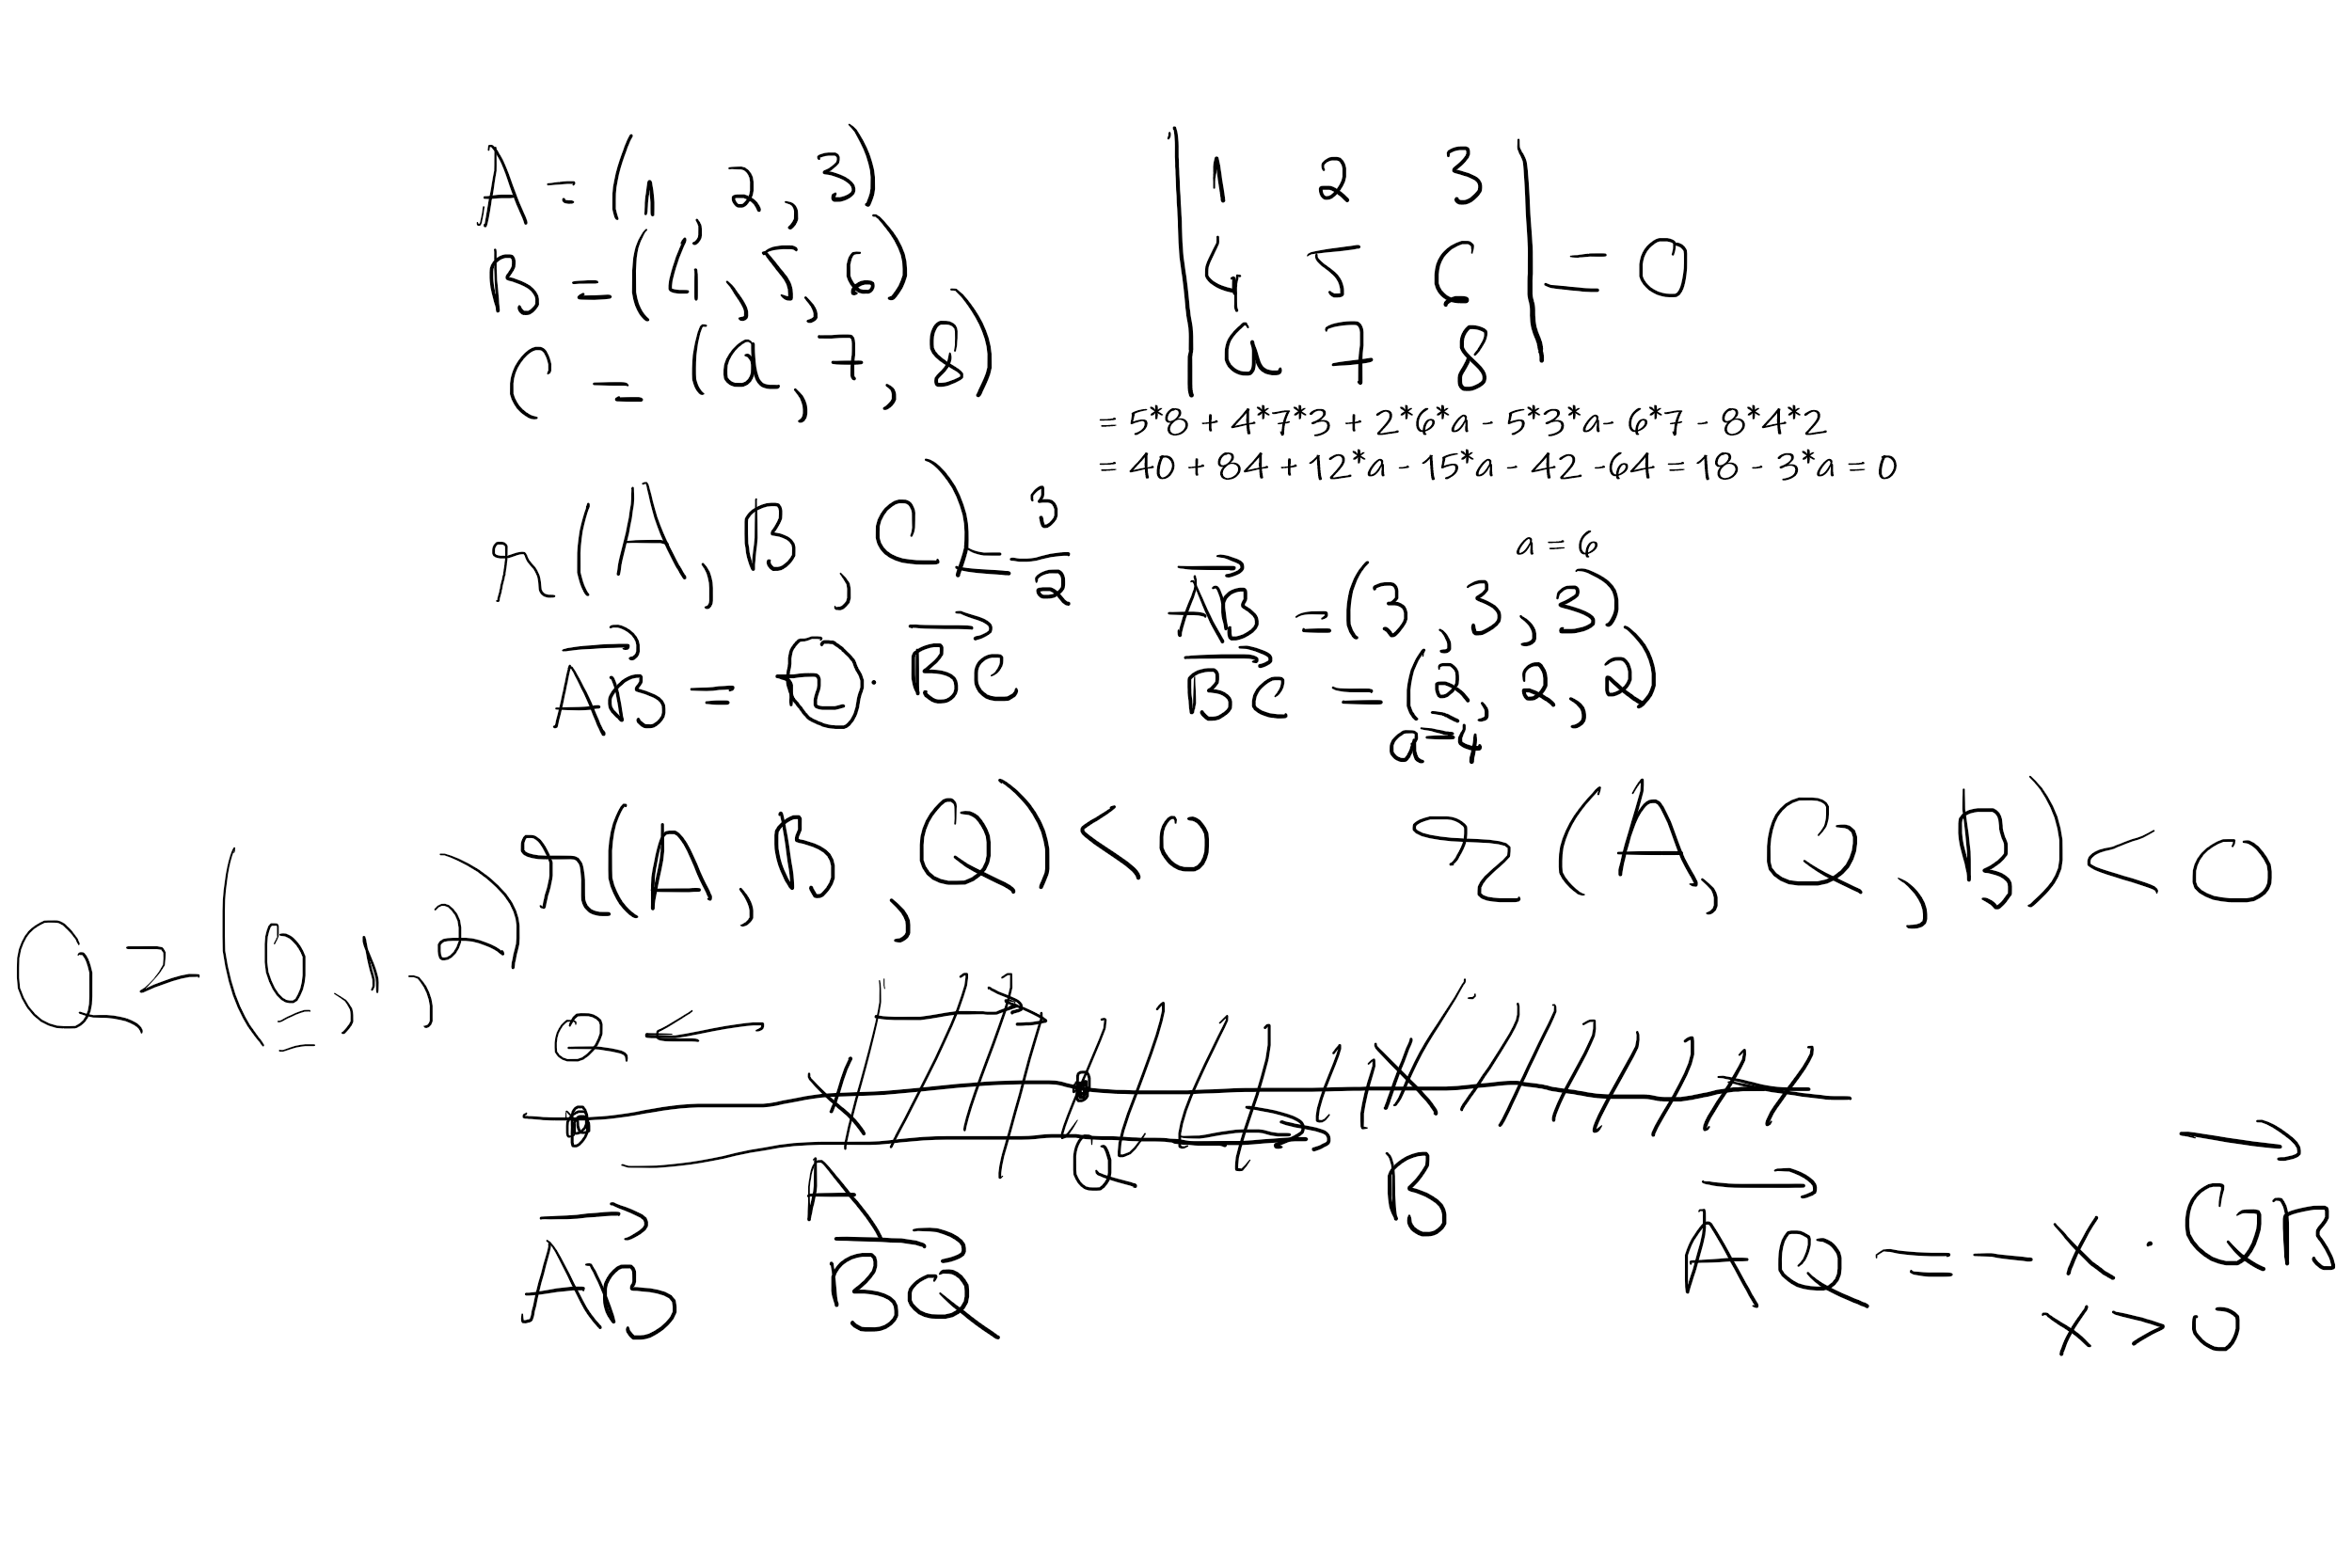 A = (1, 2, 3)
B = (4, 5, 6)
C = (a, 7, 8)
| 1 2 3 |
| 4 5 6 | = 0
| a 7 8 |
= 5*8 + 4*7*3 + 2*6*a - 5*3*a- 6*7 - 8*4*2
= 40 + 84 + 12*a - 15*a - 42 -64 = 18 - 3*a = 0
a = 6
r(A, B, C) = 3/2
AB = r · BC
AB = (3, 3, 3)
BC = (2, 2, 2)
a-4
r(A, B, Q) < 0
r(A, Q, B) < 0
Q = (0, 1, 2)
Q ←
A Q B
AB BQ
AQ = - x · QB
x > 0